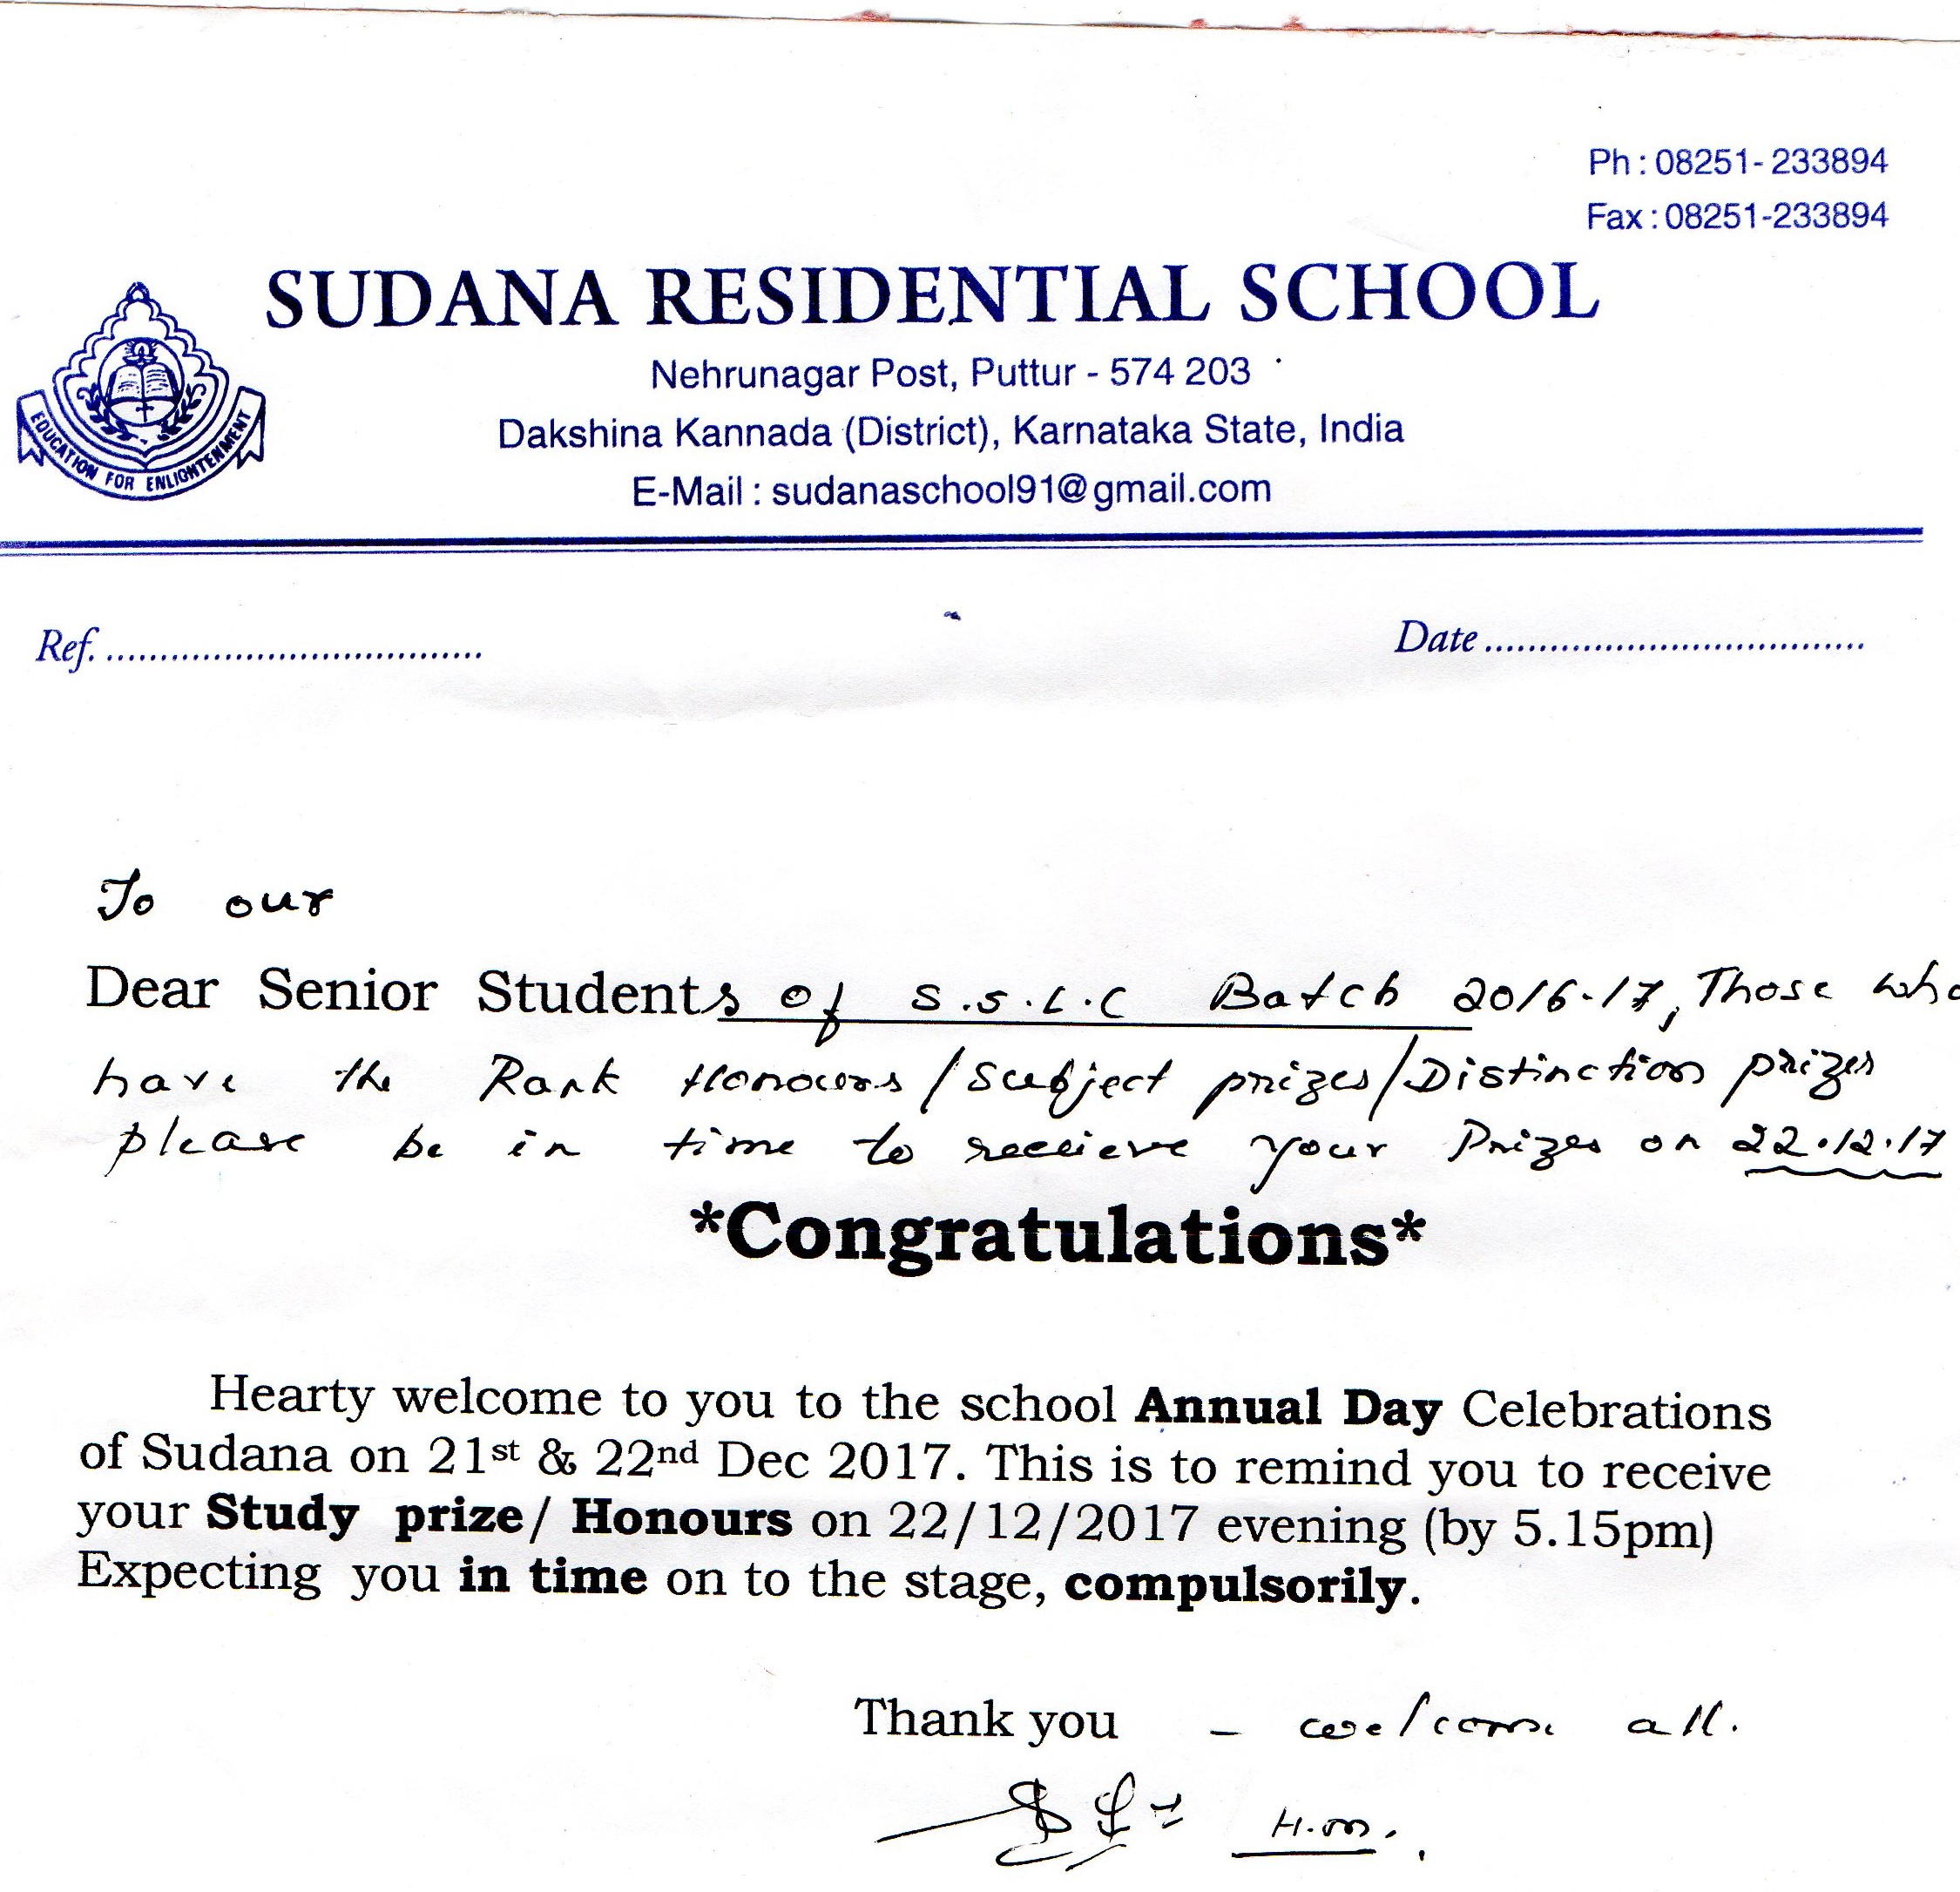 Ph : 08251- 233894
Fax : 08251-233894
SUDANA RESIDENTIAL SCHOOL
Nehrunagar Post, Puttur - 574 203
Dakshina Kannada (District), Karnataka State, India
E-Mail : sudanaschool91@gmail.com
EDUCATION FOR ENLIGHTENMENT
Ref. ...................................
Date ...................................
To our
Dear Senior Students of S.S.L.C Batch 2016-17, Those who
have the Rank Honours/Subject prizes/Distinction prizes
please be in time to receieve your Prizes on 22.12.17
*Congratulations*
Hearty welcome to you to the school Annual Day Celebrations
of Sudana on 21st & 22nd Dec 2017. This is to remind you to receive
your Study prize/ Honours on 22/12/2017 evening (by 5.15pm)
Expecting you in time on to the stage, compulsorily.
Thank you - welcome all.
H.M.